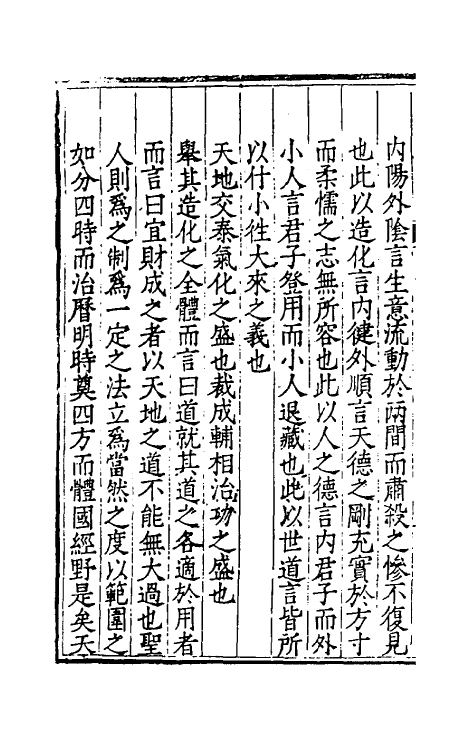 内陽外陰言生意流動於兩間而肅殺之慘不復見
也此以造化言内徤外順言天德之剛充實於方寸
而柔懦之志無所容也此以人之德言内君子而外
小人言君子登用而小人退藏也此以世道言皆所
以什小徃大來之義也
天地交泰氣化之盛也裁成輔相治功之盛也
舉其造化之全體而言曰道就其道之各適於用者
而言曰宜財成之者以天地之道不能無大過也聖
人則爲之制爲一定之法立爲當然之度以範圍之
如分四時而治曆明時奠四方而體國經野是矣天